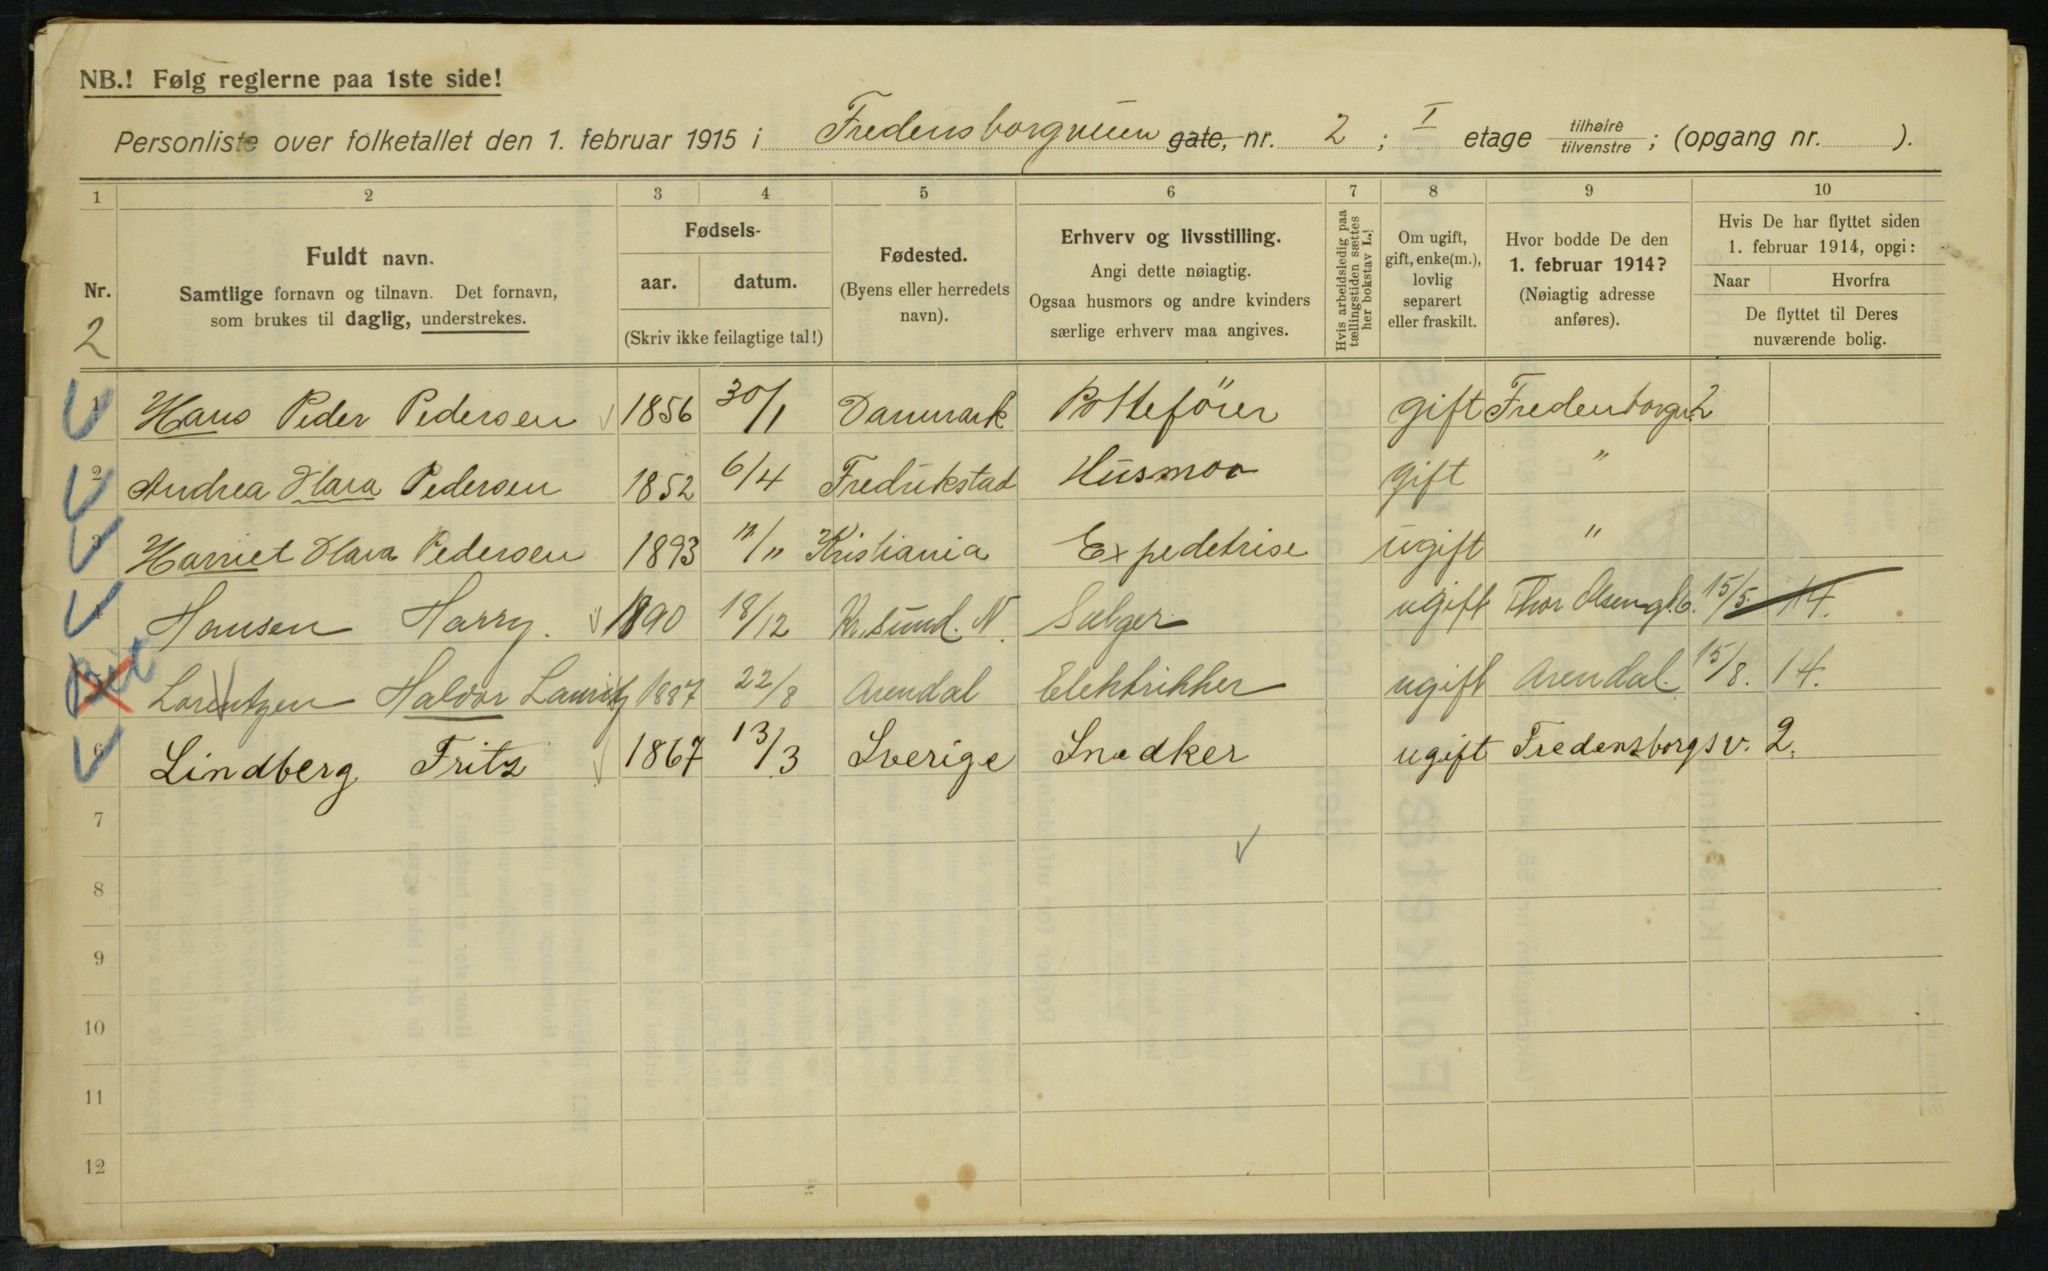 NB.! Følg reglerne paa 1ste side!
Personliste over folketallet den 1. februar 1915 i Fredensborgveien gate, nr. 2 ; I etage tilhøire/tilvenstre ; (opgang nr. ).
1 2 3 4 5 6 7 8 9 10
Nr.
2
Fuldt navn.
Samtlige fornavn og tilnavn. Det fornavn,
som brukes til daglig, understrekes.
Fødsels-
aar. datum.
(Skriv ikke feilagtige tal!)
Fødested.
(Byens eller herredets
navn).
Erhverv og livsstilling.
Angi dette nøiagtig.
Ogsaa husmors og andre kvinders
særlige erhverv maa angives.
Hvis arbeidsledig paa
tællingstiden sættes
her bokstav L.!
Om ugift,
gift, enke(m.),
lovlig
separert
eller fraskilt.
Hvor bodde De den
1. februar 1914?
(Nøiagtig adresse
anføres).
Hvis De har flyttet siden
1. februar 1914, opgi:
Naar Hvorfra
De flyttet til Deres
nuværende bolig.
1 Hans Peder Pedersen 1856 30/1 Danmark gift 2
2 Andrea Klara Pedersen 1852 6/4 Fredrikstad Husmor gift "
3 Harriet Klara Pedersen 1893 11/11 Kristiania Expedetrise ugift "
4 Hansen Harry. 1890 18/12 Kr.sund. N. Sælger ugift Thor Olsengt. 6. 15/5. 14.
Lorentzen Haldor Lauritz 1887 22/8 Arendal Elektrikker ugift Arendal. 15/8. 14.
6 Lindberg Fritz 1867 13/3 Sverige Snedker ugift Fredensborgsv. 2.
7
8
9
10
11
12